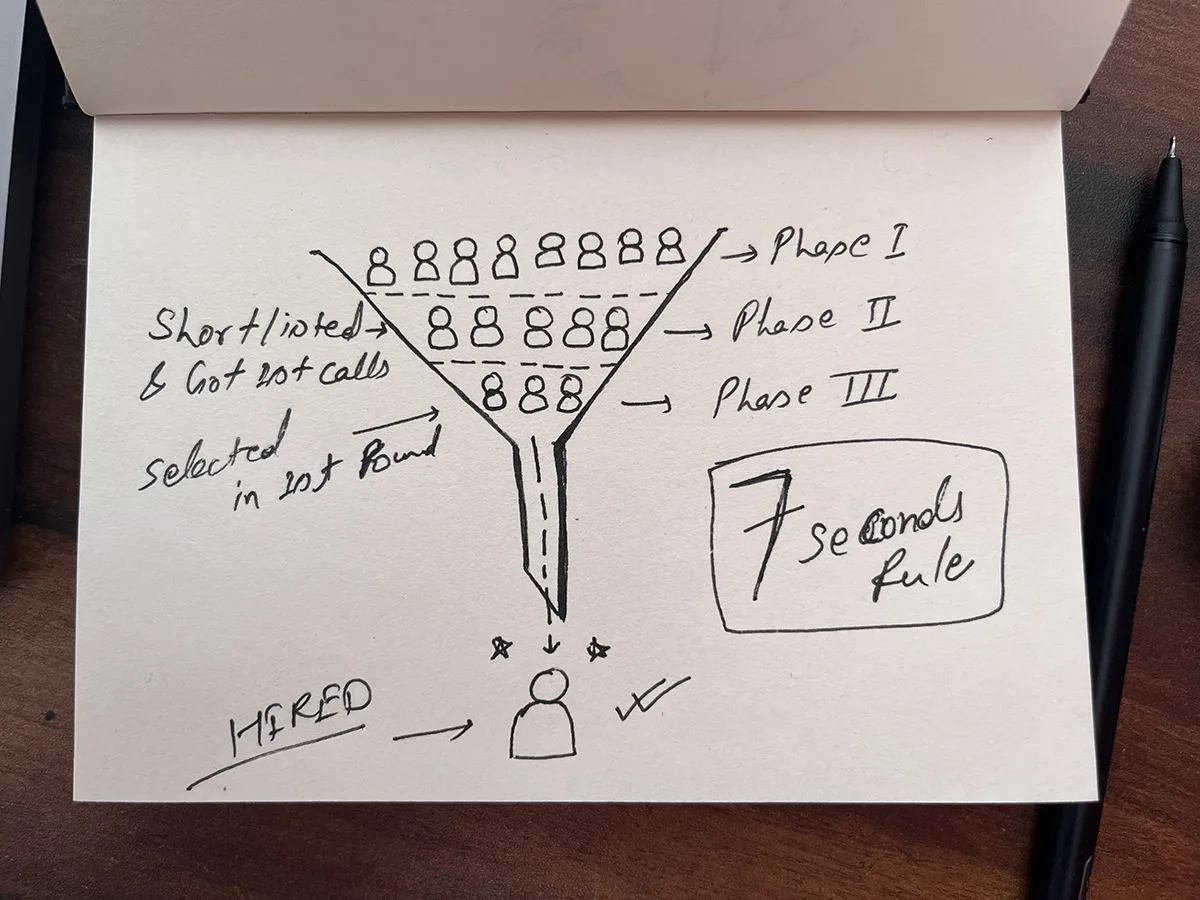 Phase I
Shortlisted
& Got 1st calls
Phase II
Phase III
Selected
in 1st Round
7 seconds
Rule
HIRED